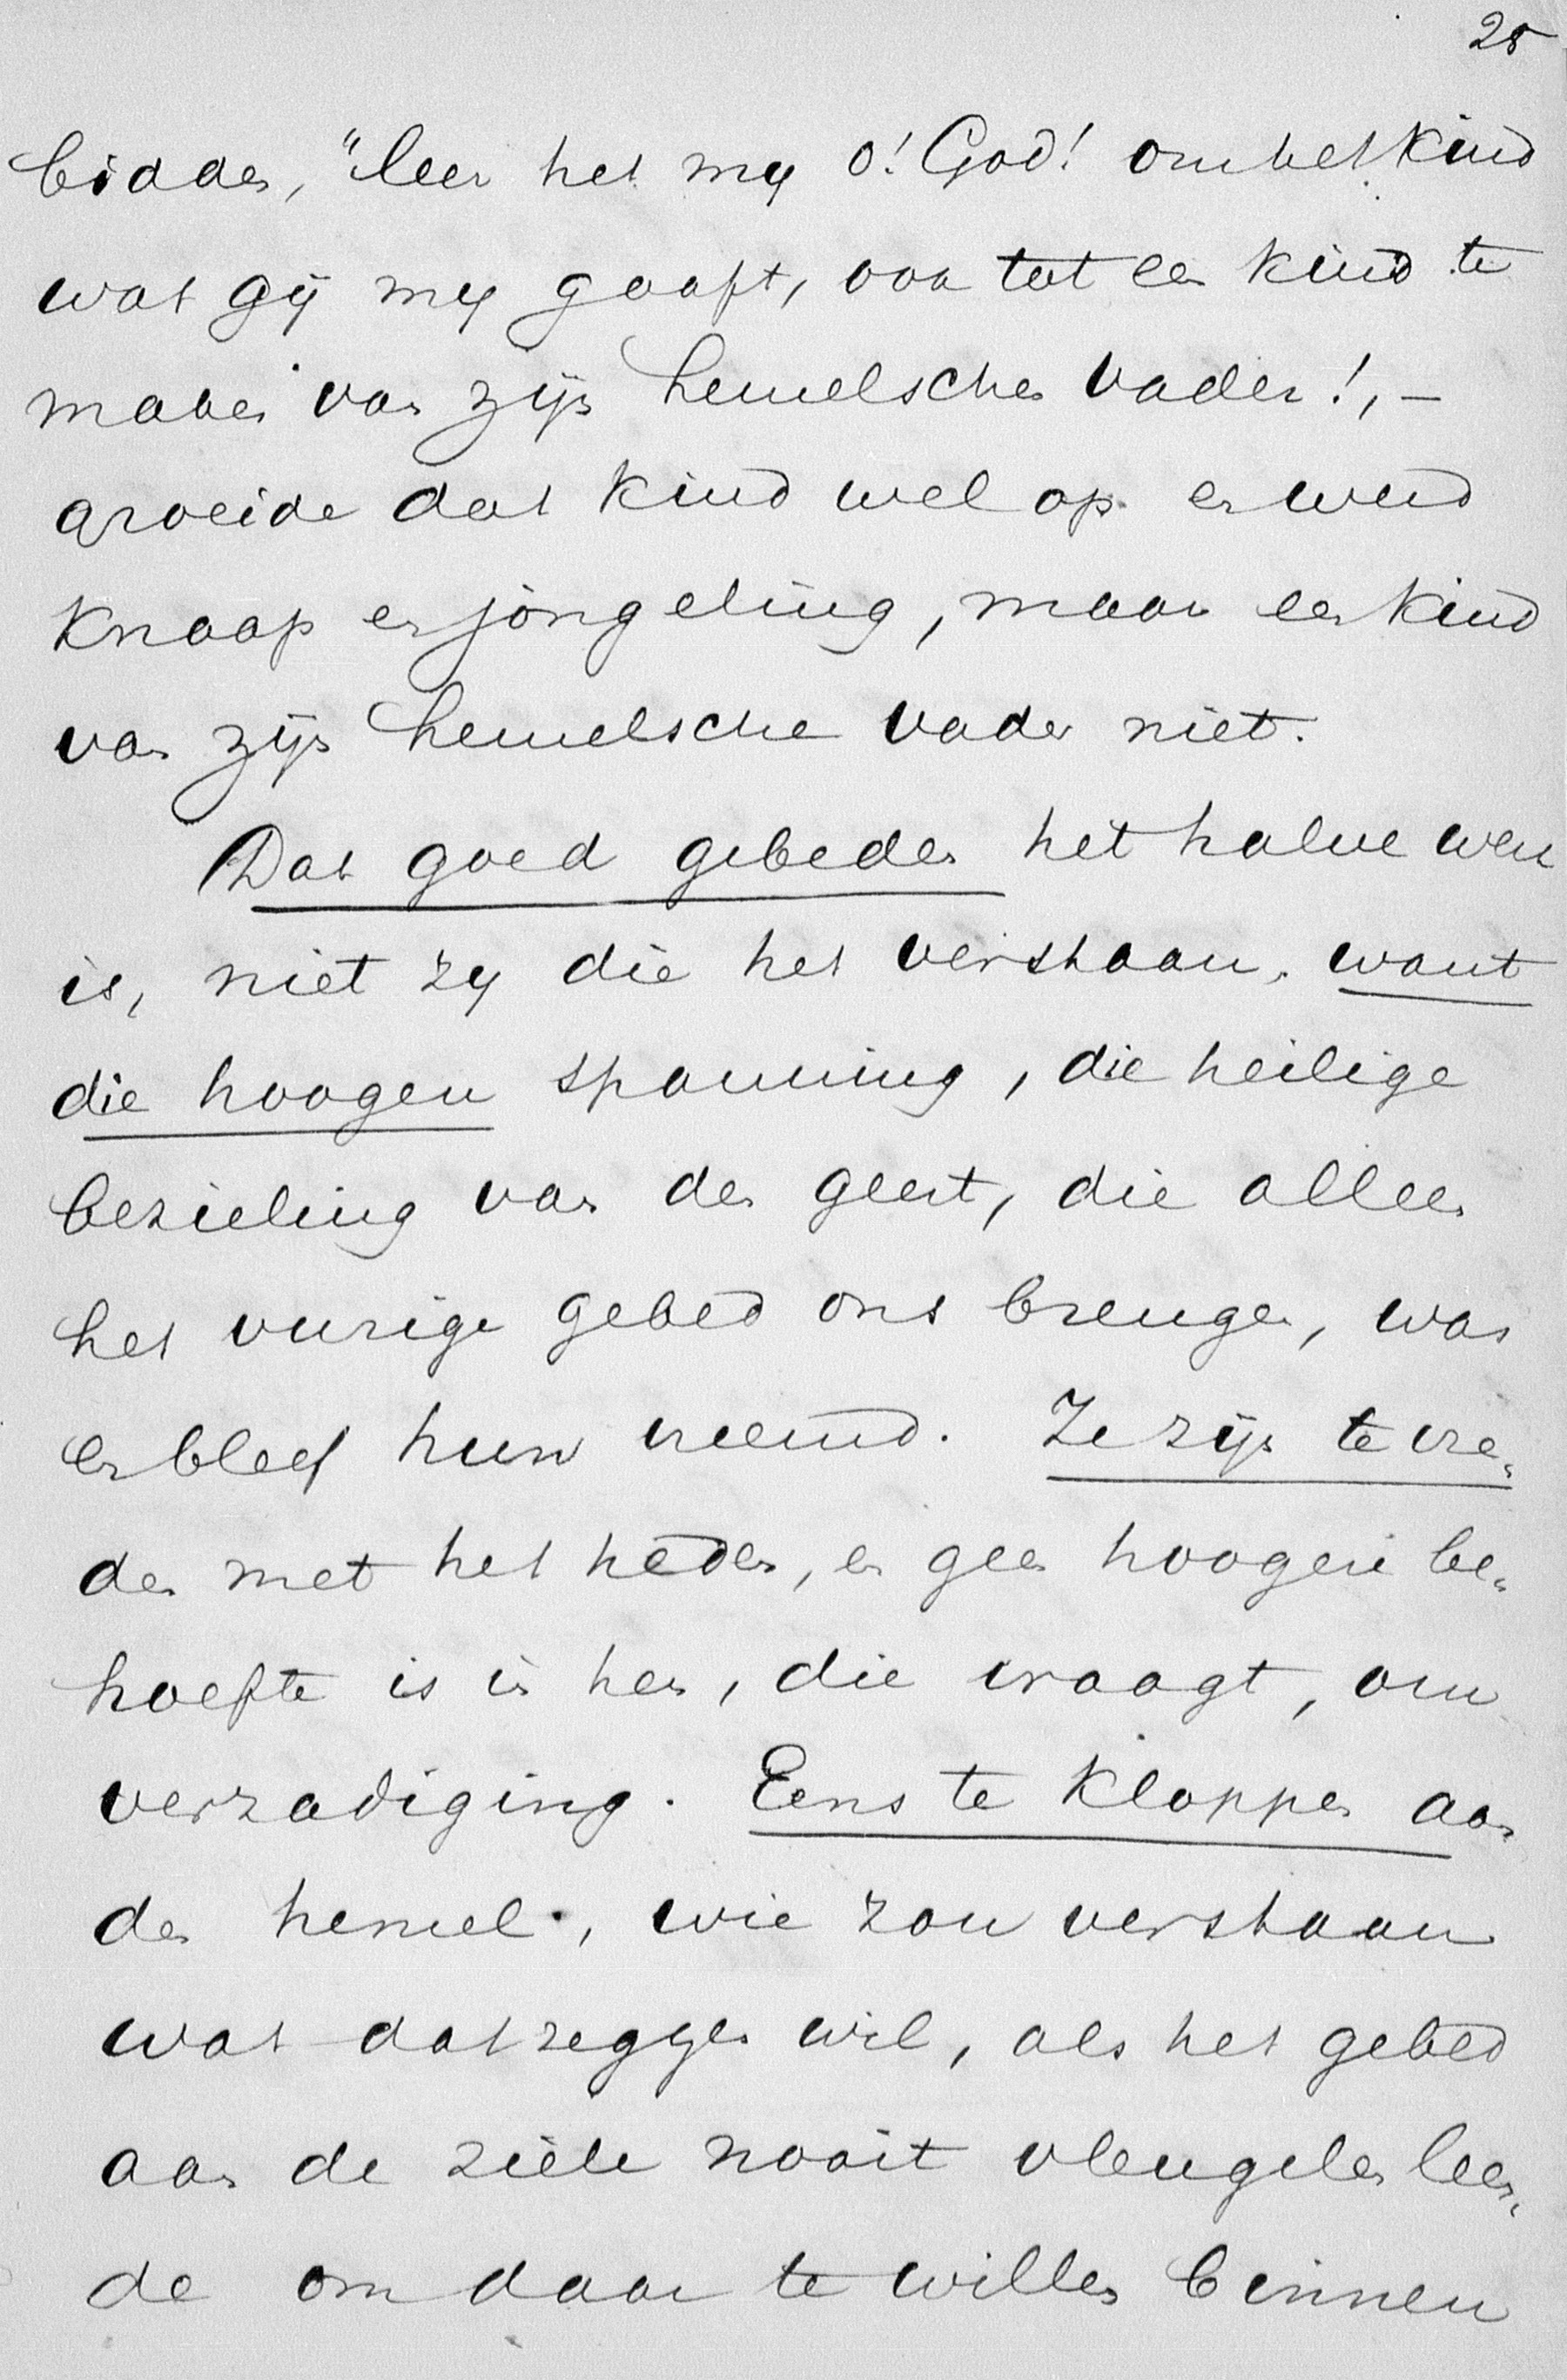 25
bidden, "leer het my o! God! om het kind
wat gij my gaaft, ook tot een kind te
maken van zijn hemelschen Vader!, —
groeide dat kind wel op en werd
knaap en jongeling, maar een kind
van zijn hemelsche vader niet.
Dat goed gebeden het halve werk
is, niet zy die het verstaan, want
die hoogen spanning, die heilige
bezieling van den geest, die alleen
het vurige gebed ons brengen, was
en bleef hun vreemd. Ze zijn tevre„
den met het heden, en geen hoogere be„
hoefte is in hen, die vraagt, om
verzadiging. Eens te kloppen aan
den hemel, wie zou verstaan
wat dat zeggen wil, als het gebed
aan de ziele nooit vleugelen leen„
de om daar te willen binnen